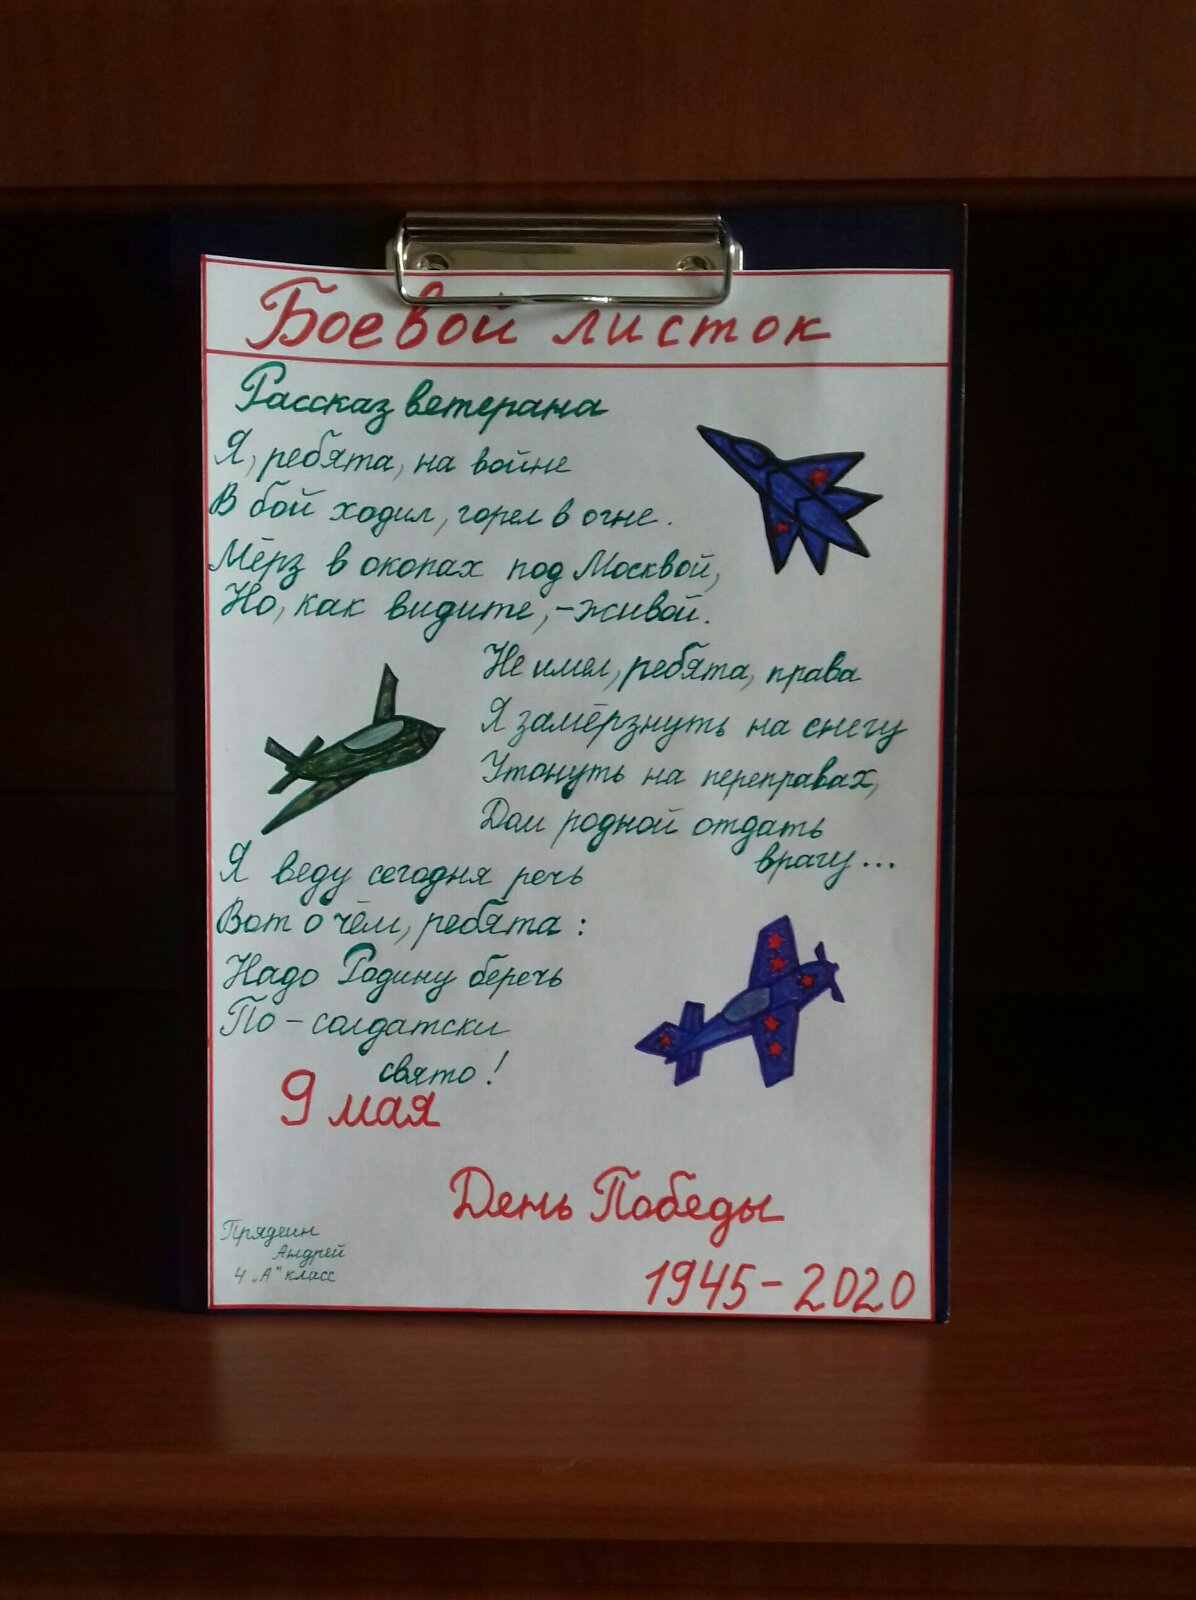 Боевой листок
Рассказ ветерана
Я, ребята, на войне
В бой ходил, горел в огне.
Мёрз в окопах под Москвой,
Но, как видите, - живой.
Не имел, ребята, права
Я замёрзнуть на снегу
Утонуть на переправах,
Дом родной отдать
врагу...
Я веду сегодня речь
Вот о чём, ребята:
Надо Родину беречь
По-солдатски
свято!
9 мая
День Победы
Прядеин
Андрей
4 „А" класс
1945-2020